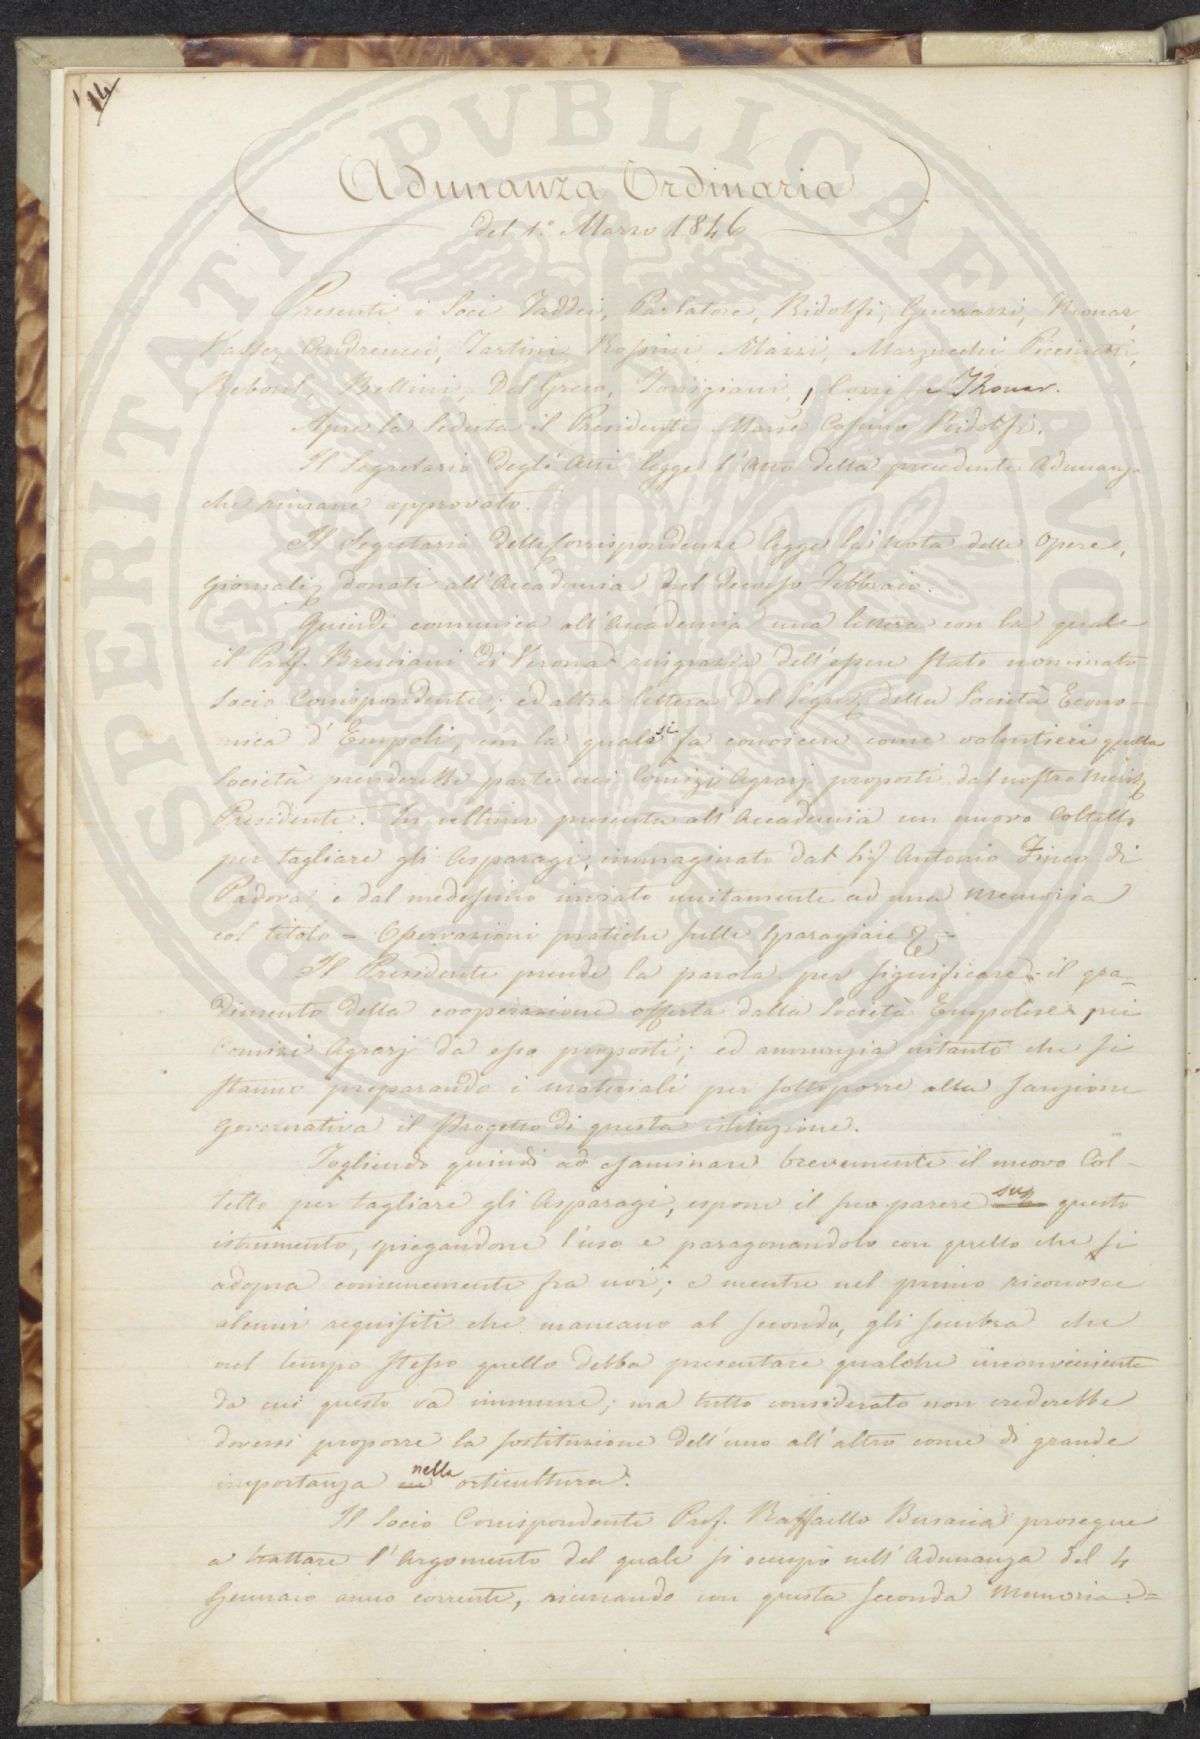 14
Adunanza Ordinaria
del 1.° Marzo 1846
Presenti i Soci Taddei, Parlatore, Ridolfi, Guerrazzi,
Andreucci, Tartini, Rossini, Mazzi, Marzucchi, Piccinetti,
Reboul, Bellini, Del Greco, Torrigiani, Cozzi e Thouar.
Apre la Seduta il Presidente March.e Cosimo Ridolfi.
Il Segretario degli Atti legge l'Atto della precedente Adunanza
che rimane approvato.
Il Segretario delle Corrispondenze legge la Nota delle Opere,
giornali donati all'Accademia nel decorso Febbraio.
Quindi comunica all'Accademia una lettera con la quale
il Prof. Bresciani di Verona ringrazia dell'essere stato nominato
Socio Corrispondente; ed altra lettera del Segret. della Società Econo-
mica d'Empoli, con la quale si fa conoscere come volentieri quella
Società prenderebbe parte nei Comizj Agrarj proposti dal nostro
Presidente. In ultimo presenta all'Accademia un nuovo Coltello
per tagliare gli Asparagi, immaginato dal Sig. Antonio Zinco di
Padova e dal medesimo inviato unitamente ad una Memoria
col titolo = Osservazioni pratiche sulle Sparagiaie &. =
Il Presidente prende la parola per significare il gra-
dimento della cooperazione offerta dalla Società Empolese, nei
Comizi Agrarj da esso proposti; ed annunzia intanto che si
stanno preparando i materiali per sottoporre alla sanzione
Governativa il Progetto di questa istituzione.
Togliendo quindi ad esaminare brevemente il nuovo Col-
tello per tagliare gli Asparagi, espone il suo parere su questo
istrumento, spiegandone l'uso e paragonandolo con quello che si
adopra comunemente fra noi; e mentre nel primo riconosce
alcuni requisiti che mancano al secondo, gli sembra che
nel tempo stesso quello debba presentare qualche inconveniente
da cui questo va immune; ma tutto considerato non crederebbe
doversi proporre la sostituzione dell'uno all'altro come di grande
importanza nella orticultura.
Il Socio Corrispondente Prof. Raffaello Busacca prosegue
a trattare l'Argomento del quale si occupò nell'Adunanza del 4
Gennaio anno corrente, ricercando con questa seconda Memoria =